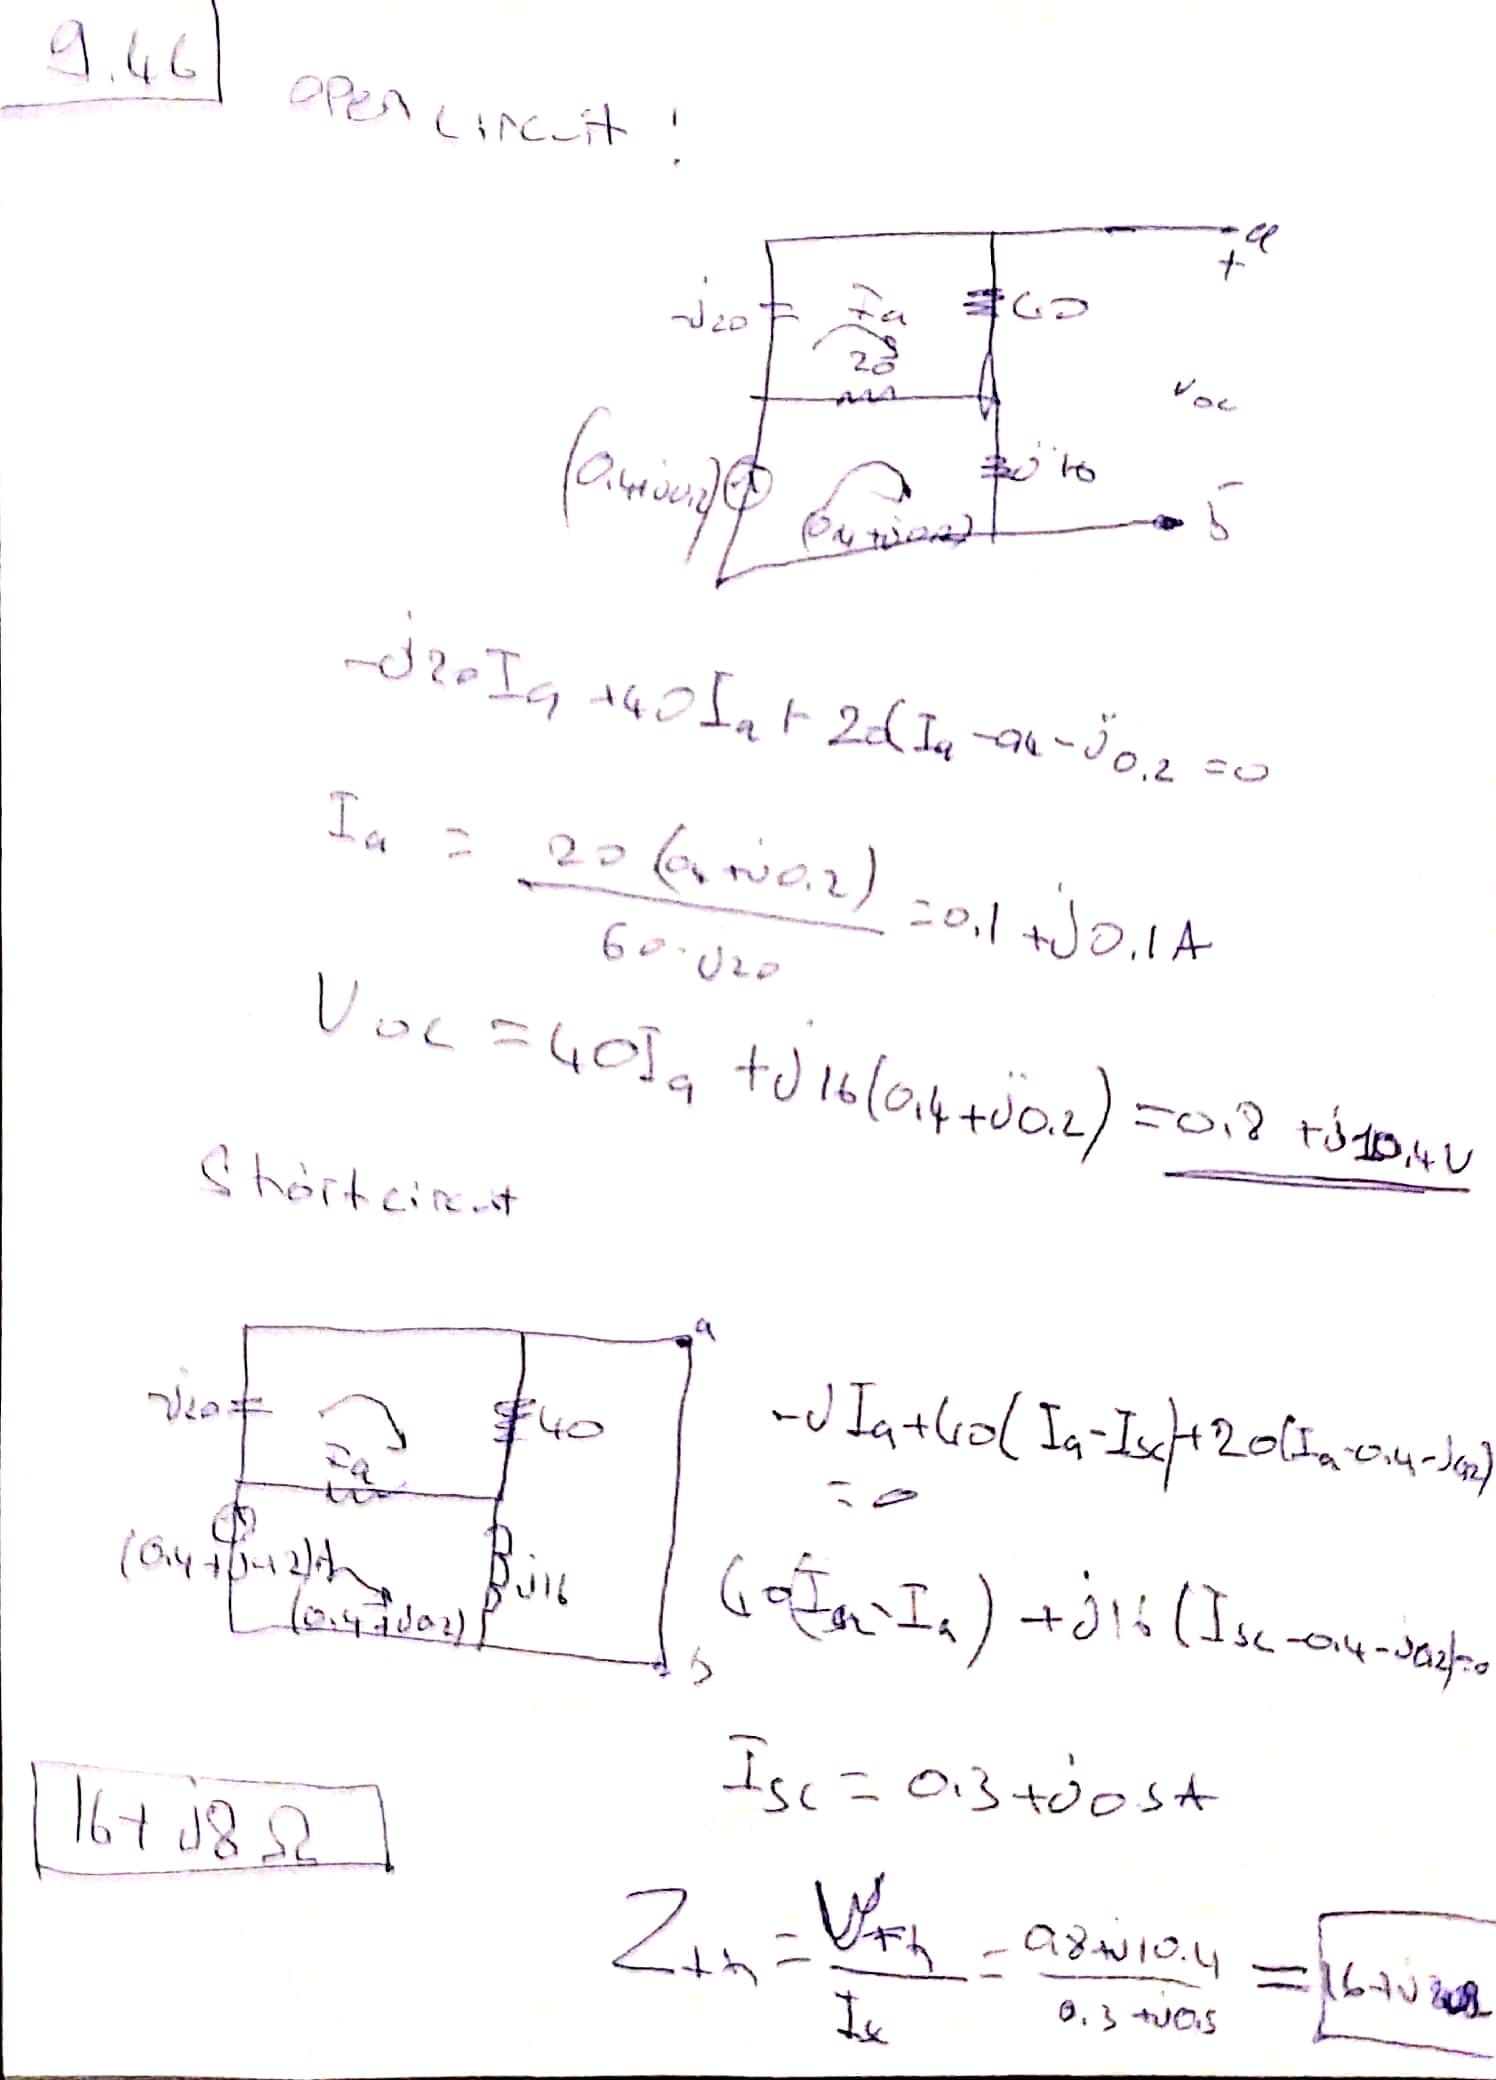 9.46
open circuit !
a
+
-j20
Ia
40
20
Voc
(0.4+j0.2)
j16
(0.4+j0.2)
-
b
-j20Ia +40Ia + 20(Ia -0.4 -j0.2 =0
Ia = 20(0.4+j0.2) / 60-j20 =0.1 +j0.1A
Voc =40Ia +j16(0.4+j0.2) =0.8 +j10.4V
Short circuit
a
-j20
40
Ia
(0.4+j0.2)A
j16
(0.4+j0.2)
b
-jIa+40(Ia-Isc)+20(Ia-0.4-j0.2)
=0
40(Isc-Ia) +j16(Isc-0.4-j0.2)=0
Isc = 0.3+j0.5A
16+j8 Ω
Zth = Vth / Isc = 0.8+j10.4 / 0.3+j0.5 =